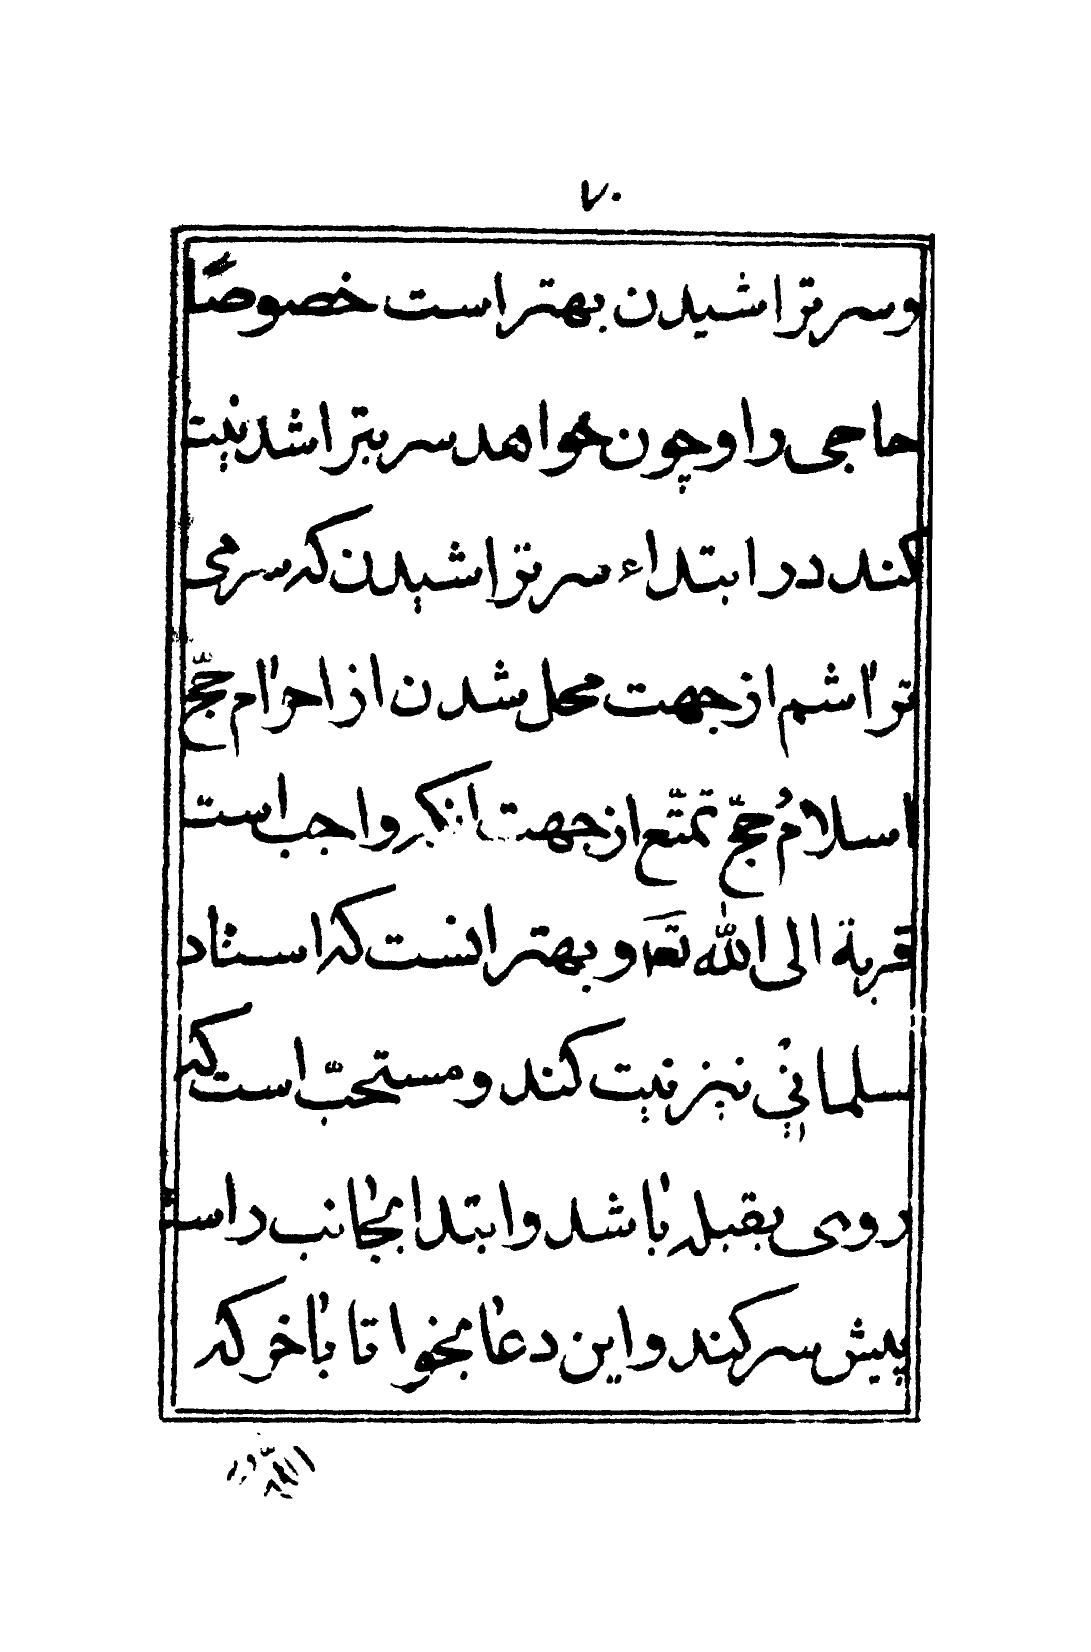 ۷۰
وسر تراشیدن بهتر است خصوصًا
حاجی را و چون خواهد سر بتراشد نیت
کند در ابتداء سر تراشیدن که سر می
تراشم از جهت محل شدن از احرام حجّ
اسلام حجّ تمتّع از جهت انکه واجب است
قربة الی الله تعه و بهتر انست که استاد
سلمانی نیز نیت کند و مستحبّ است که
روی بقبله باشد و ابتدا بجانب راست
پیش سر کند و این دعا بخوا تا باخر که
اللّهم